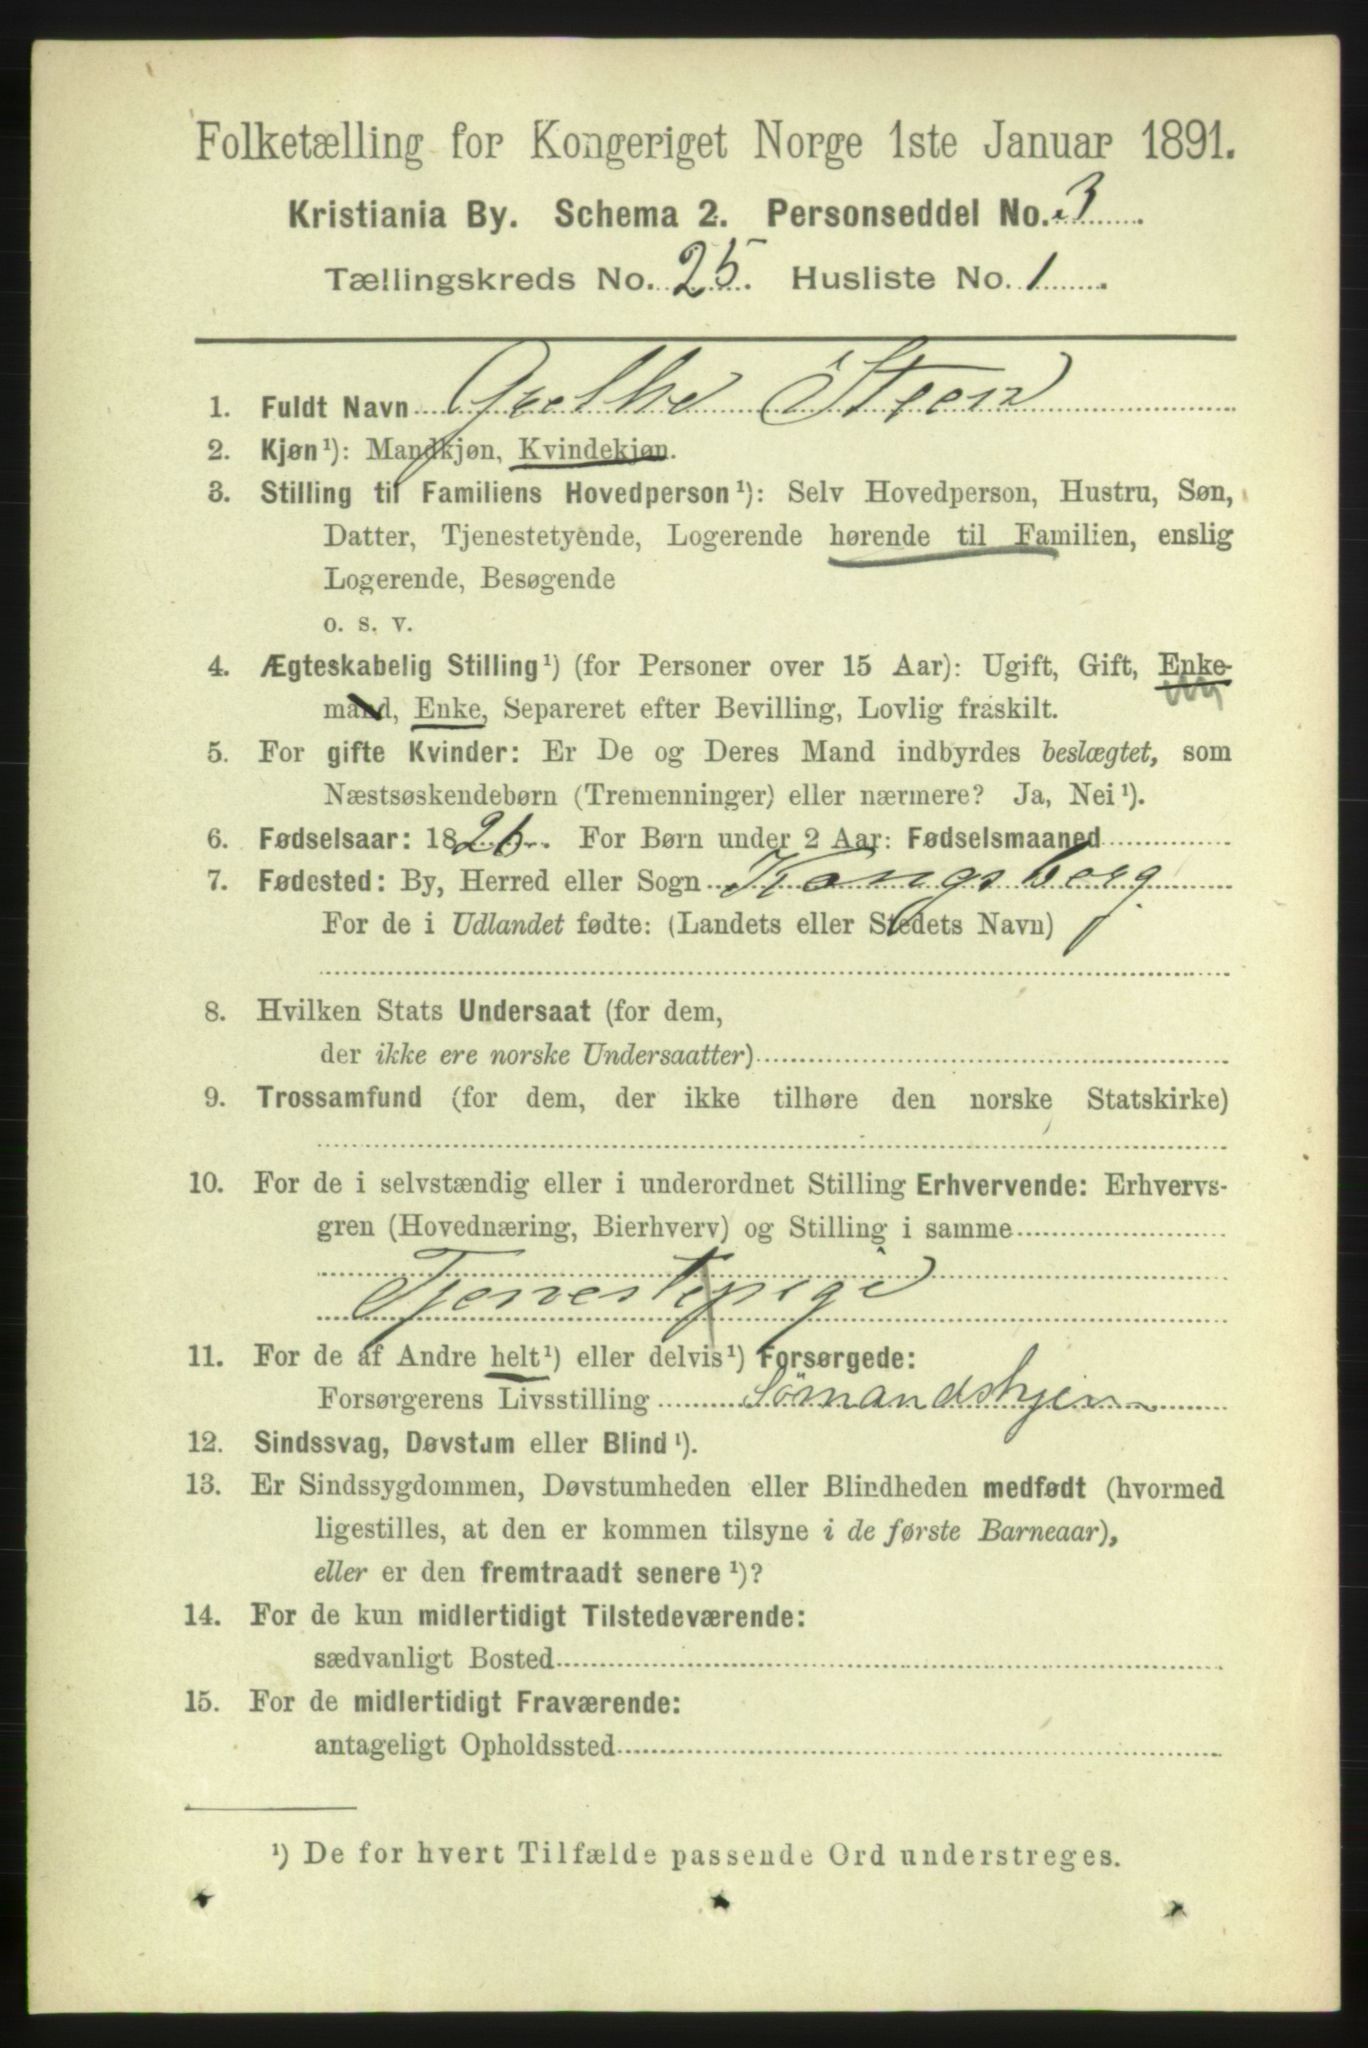 Folketælling for Kongeriget Norge 1ste Januar 1891.
Kristiania By. Schema 2. Personseddel No. 3
Tællingskreds No. 25. Husliste No. 1.
1. Fuldt Navn Steen
2. Kjøn¹): Mandkjøn, Kvindekjøn.
3. Stilling til Familiens Hovedperson¹): Selv Hovedperson, Hustru, Søn,
Datter, Tjenestetyende, Logerende hørende til Familien, enslig
Logerende, Besøgende
o. s. v.
4. Ægteskabelig Stilling¹) (for Personer over 15 Aar): Ugift, Gift, Enke-
mand, Enke, Separeret efter Bevilling, Lovlig fraskilt.
5. For gifte Kvinder: Er De og Deres Mand indbyrdes beslægtet, som
Næstsøskendebørn (Tremenninger) eller nærmere? Ja, Nei¹).
6. Fødselsaar: 1826. For Børn under 2 Aar: Fødselsmaaned
7. Fødested: By, Herred eller Sogn Kongsberg
For de i Udlandet fødte: (Landets eller Stedets Navn)
8. Hvilken Stats Undersaat (for dem,
der ikke ere norske Undersaatter)
9. Trossamfund (for dem, der ikke tilhøre den norske Statskirke)
10. For de i selvstændig eller i underordnet Stilling Erhvervende: Erhvervs-
gren (Hovednæring, Bierhverv) og Stilling i samme
Tjenestepige
11. For de af Andre helt¹) eller delvis¹) Forsørgede:
Forsørgerens Livsstilling Sömandshjem
12. Sindssvag, Døvstum eller Blind¹).
13. Er Sindssygdommen, Døvstumheden eller Blindheden medfødt (hvormed
ligestilles, at den er kommen tilsyne i de første Barneaar),
eller er den fremtraadt senere¹)?
14. For de kun midlertidigt Tilstedeværende:
sædvanligt Bosted
15. For de midlertidigt Fraværende:
antageligt Opholdssted
¹) De for hvert Tilfælde passende Ord understreges.